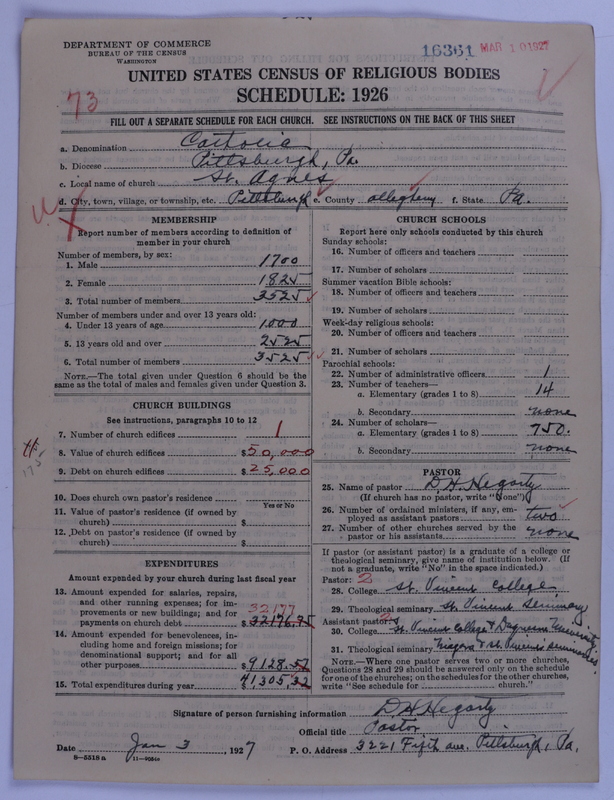 DEPARTMENT OF COMMERCE
BUREAU OF THE CENSUS
WASHINGTON
16361 MAR 10 1927
UNITED STATES CENSUS OF RELIGIOUS BODIES
SCHEDULE: 1926
73
FILL OUT A SEPARATE SCHEDULE FOR EACH CHURCH. SEE INSTRUCTIONS ON THE BACK OF THIS SHEET
a. Denomination Catholic
b. Diocese Pittsburgh, Pa.
c. Local name of church St. Agnes
d. City, town, village, or township, etc. Pittsburgh e. County Allegheny f. State Pa.
MEMBERSHIP
Report number of members according to definition of
member in your church
Number of members, by sex:
1. Male 1700
2. Female 1825
3. Total number of members 3525
Number of members under and over 13 years old:
4. Under 13 years of age 1000
5. 13 years old and over 2525
6. Total number of members 3525
NOTE.—The total given under Question 6 should be the
same as the total of males and females given under Question 3.
CHURCH BUILDINGS
See instructions, paragraphs 10 to 12
7. Number of church edifices 1
8. Value of church edifices $50,000
9. Debt on church edifices $25,000
10. Does church own pastor's residence
Yes or No
11. Value of pastor's residence (if owned by
church) $
12. Debt on pastor's residence (if owned by
church) $
EXPENDITURES
Amount expended by your church during last fiscal year
13. Amount expended for salaries, repairs,
and other running expenses; for im-
provements or new buildings; and for 32177
payments on church debt $32176,75
14. Amount expended for benevolences, in-
cluding home and foreign missions; for
denominational support; and for all
other purposes $9128.57
15. Total expenditures during year $41305,32
CHURCH SCHOOLS
Report here only schools conducted by this church
Sunday schools:
16. Number of officers and teachers
17. Number of scholars
Summer vacation Bible schools:
18. Number of officers and teachers
19. Number of scholars
Week-day religious schools:
20. Number of officers and teachers
21. Number of scholars
Parochial schools:
22. Number of administrative officers 1
23. Number of teachers—
a. Elementary (grades 1 to 8) 14
b. Secondary none
24. Number of scholars—
a. Elementary (grades 1 to 8) 750.
b. Secondary none
PASTOR
25. Name of pastor D. H. Hegarty
(If church has no pastor, write "None")
26. Number of ordained ministers, if any, em-
ployed as assistant pastors two
27. Number of other churches served by the
pastor or his assistants none
If pastor (or assistant pastor) is a graduate of a college or
theological seminary, give name of institution below. (If
not a graduate, write "No" in the space indicated.)
Pastor: 2
28. College St. Vincent College
29. Theological seminary St. Vincent Seminary
Assistant pastor:
30. College St. Vincent College & Duquesne University
31. Theological seminary Niagara & St. Vincent's Seminaries
NOTE.—Where one pastor serves two or more churches,
Questions 28 and 29 should be answered only on the schedule
for one of the churches; on the schedules for the other churches,
write "See schedule for church."
Signature of person furnishing information D H Hegarty
Official title Pastor
Date Jan 3, 1927 P. O. Address 3221 Fifth ave. Pittsburgh, Pa.
8—5518 a 11—9051a